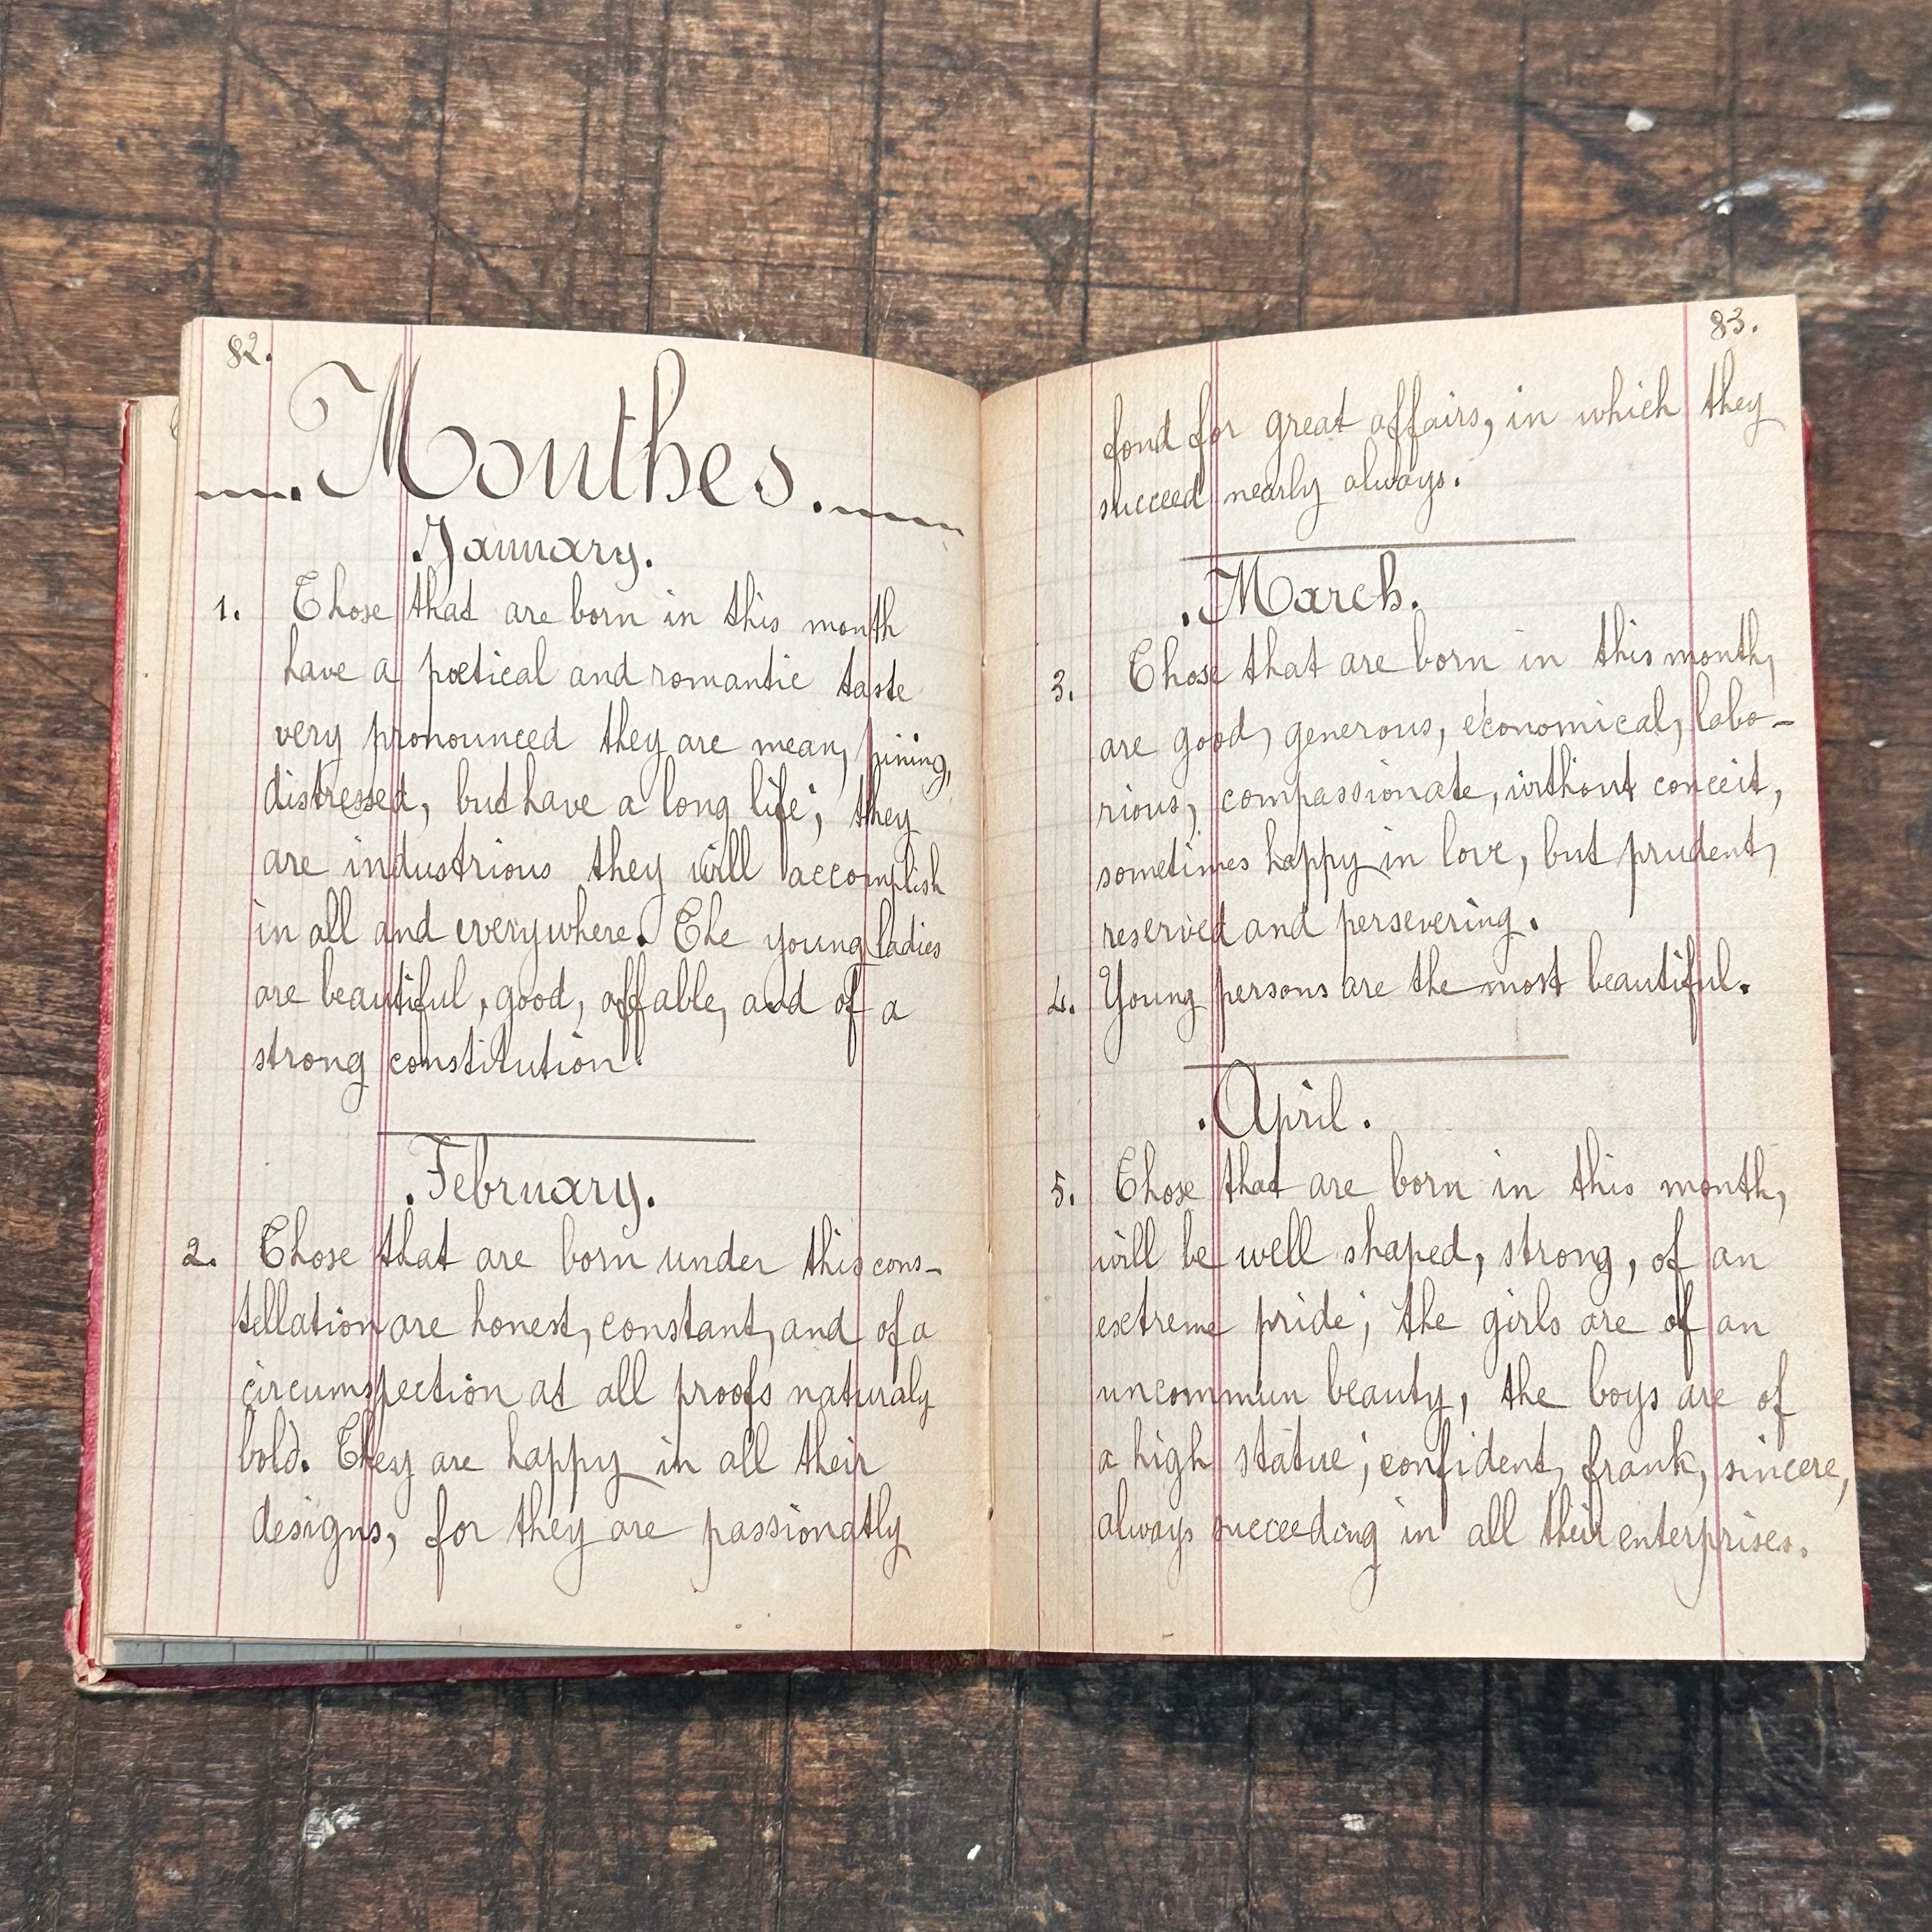 82.
Monthes.
.January.
1. Those that are born in this month
have a poetical and romantic taste
very pronounced they are mean, pining,
distressed, but have a long life; they
are industrious they will accomplish
in all and everywhere. The young ladies
are beautiful, good, affable, and of a
strong constitution.
.February.
2. Those that are born under this cons-
tellation are honest, constant, and of a
circumspection at all proofs naturaly
bold. They are happy in all their
designs, for they are passionatly
83.
fond for great affairs, in which they
succeed nearly always.
.March.
3. Those that are born in this month,
are good, generous, économical, labo-
rious, compassionate, without conceit,
sometimes happy in love, but prudent,
reserved and persevering.
4. Young persons are the most beautiful.
.April.
5. Those that are born in this month,
will be well shaped, strong, of an
extreme pride; the girls are of an
uncommun beauty, the boys are of
a high statue; confident, frank, sincere,
always succeeding in all their enterprises.